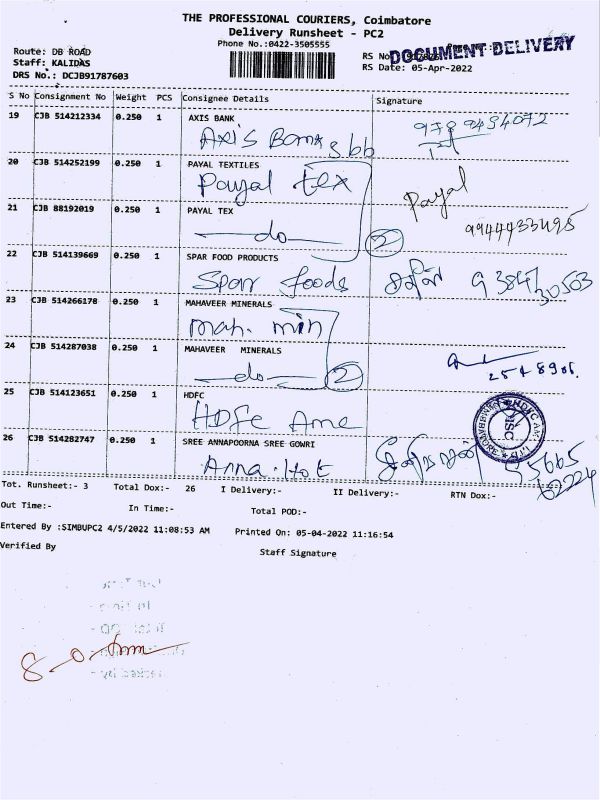 THE PROFESSIONAL COURIERS, Coimbatore
Delivery Runsheet - PC2
Phone No.:0422-3505555
DOCUMENT DELIVERY
Route: DB ROAD
Staff: KALIDAS
DRS No.: DCJB91787603
RS No
RS Date: 05-Apr-2022
S No Consignment No Weight PCS Consignee Details Signature
19 CJB 514212334 0.250 1 AXIS BANK
Axis Bank
20 CJB 514252199 0.250 1 PAYAL TEXTILES
Payal tex Payal
21 CJB 88192019 0.250 1 PAYAL TEX
do 2 9944433495
22 CJB 514139669 0.250 1 SPAR FOOD PRODUCTS
Spar foods
23 CJB 514266178 0.250 1 MAHAVEER MINERALS
mah. min
24 CJB 514287038 0.250 1 MAHAVEER MINERALS
do 2
25 CJB 514123651 0.250 1 HDFC
HDFC Amc
26 CJB 514282747 0.250 1 SREE ANNAPOORNA SREE GOWRI
Anna. Hot
Tot. Runsheet:- 3 Total Dox:- 26 I Delivery:- II Delivery:- RTN Dox:-
Out Time:- In Time:- Total POD:-
Entered By :SIMBUPC2 4/5/2022 11:08:53 AM Printed On: 05-04-2022 11:16:54
Verified By Staff Signature